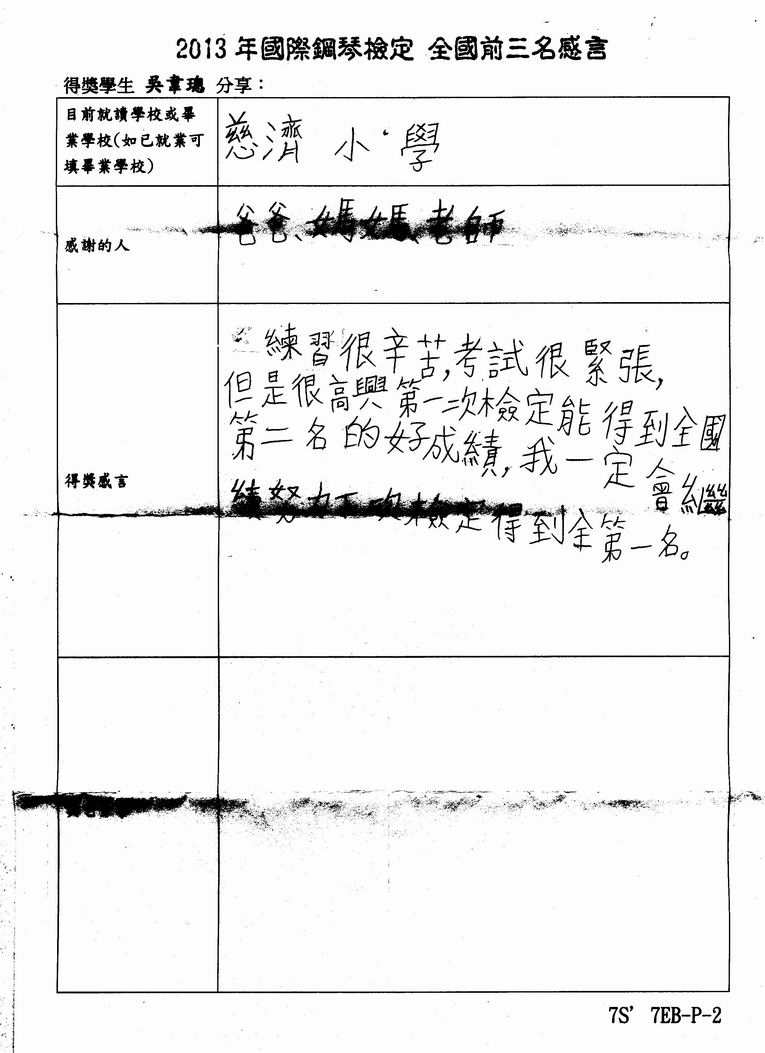 2013 年國際鋼琴檢定 全國前三名感言
得獎學生 吳韋璁 分享：
目前就讀學校或畢
業學校(如已就業可
填畢業學校)
慈濟 小學
感謝的人
爸爸、媽媽、老師
得獎感言
練習很辛苦,考試很緊張,
但是很高興第一次檢定能得到全國
第二名的好成績,我一定會繼
續努力下次檢定得到全第一名。
7S' 7EB-P-2